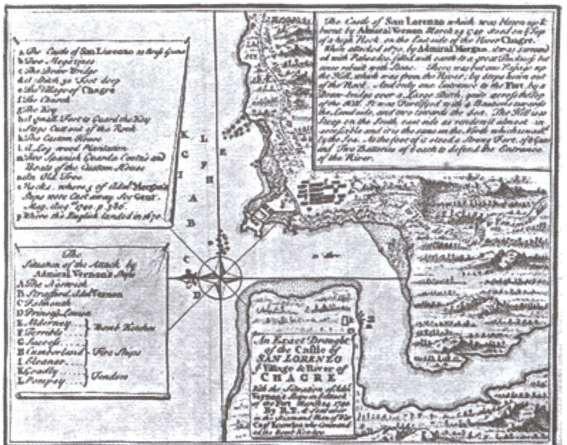 a The Castle of San Lorenzo 22 Brass Guns
b Two Magazines
c The Draw Bridge
d A Ditch 30 Foot deep
e The Village of Chagre
f The Church
g The Key
h A small Fort to Guard the Key
i Steps Cutt out of the Rock
k The Custom House
l A Log wood Plantation
m Two Spanish Guarda Costa's and
Boats of the Custom House
n An Old Tree
o Rocks, where 5 of Adml. Morgan's
Ships were Cast away. See Gent.
Mag. Aug 1740. p.
p Where the English landed in 1670.
The Castle of San Lorenzo which was blown up &
burnt by Admiral Vernon March 24 1740 stands on ye Top
of a high Rock on the East side of the River Chagre.
When attacked 1670, by Admiral Morgan, it was surround
ed with Palisades filled with earth to a great Thickness but
was rebuilt with Stone. There was but one Passage up
the Hill, which was from the River, by steps hewn out
of the Rock. And only one Entrance to the Fort by a
Draw-bridge over a Large Ditch, quite across the Top
of the Hill. It was Fortified with 4 Bastions towards
the Land side, and two towards the Sea. The Hill was
Steep on the South, east side as rendered almost in-
accessible and it is the same on the North which is wash'd
by the Sea. At the foot of it stood a Strong Fort, of 8 Guns
and Two Batteries of 6 each to defend the Entrance
of the River.
The
Situation of the Attack by
Admiral Vernon's Ships
A The Norwich
B Strafford Adml Vernon
C Falmouth
D Princess Louisa
E Alderney
F Terrible
Bomb Ketches
G Success
H Cumberland
I Eleanor
Fire Ships
K Goodly
L Pompey
Tenders
An Exact Draught
of the Castle of
SAN LORENZO
& Village & River of
CHAGRE
With the Situation of Adml
Vernon's Ships in ye Attack
of the Fort March 24 1740